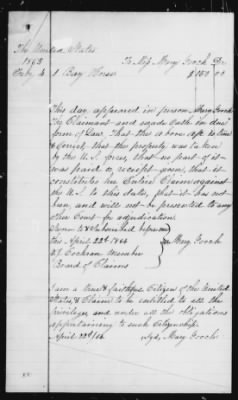 The United States
1863 To Miss Mary Gooch Dr
July 4 1 Bay Horse $150 00
This day appeared in person Mary Gooch
the Claimant and made Oath in due
form of Law, that the above a/c is true
& correct, that the property was taken
by the U.S. forces, that no part of it
was paid or receipt given, that it
constitutes her Entire Claim against
the U.S. to this date, that it has not
been, and will not be presented to any
other Court for adjudication.
Sworn to & subscribed before me
this April 22d 1866 Mary Gooch
Cochran Member
Board of Claims
I am a true & faithful Citizen of the United
States, & Claim to be entitled to all the
privileges and under all the obligations
appertaining to such Citizenship.
April 22d/66 Sgd, Mary Gooch